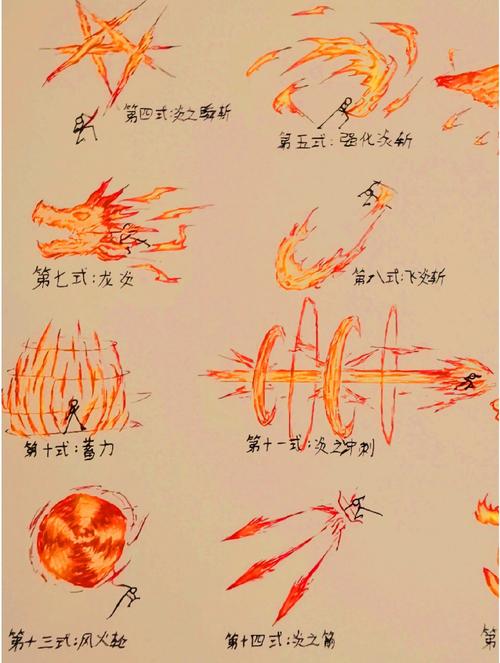 第四式:炎之瞬斩
第五式:强化炎斩
第七式:龙炎
第八式:飞炎斩
第十式:蓄力
第十一式:炎之冲刺
第十三式:风火轮
第十四式:炎之箭
第